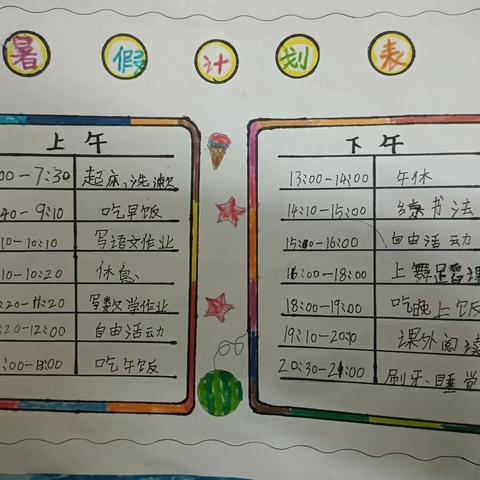 暑假计划表
上午
00-7:30 起床、洗漱
40-9:10 吃早饭
10-10:10 写语文作业
10-10:20 休息
:20-11:20 写数学作业
:20-12:00 自由活动
:00-13:00 吃午饭
下午
13:00-14:00 午休
14:10-15:00 练书法
15:10-16:00 自由活动
16:00-18:00 上舞蹈课
18:00-19:00 吃晚上饭
19:10-20:10 课外阅读
20:30-21:00 刷牙、睡觉